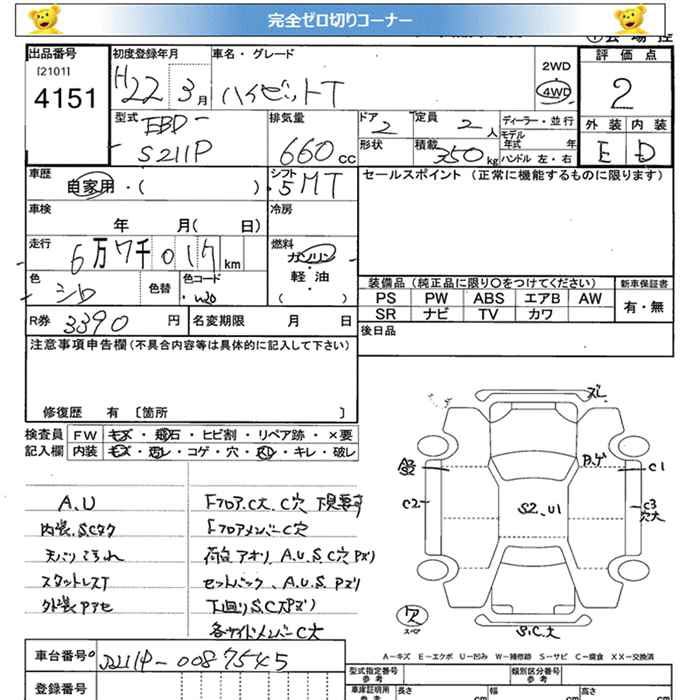 完全ゼロ切りコーナー
出品番号 初度登録年月 車名・グレード 評価点
[2101]
4151 H22 3月 ハイゼットT 2WD 4WD 2
型式 EBD- 排気量 ドア 2 定員 2人 ディーラー・並行 外装 内装
S211P 660cc 形状 積載 350kg モデル年式 年式 ハンドル 左・右 E D
車歴 シフト セールスポイント (正常に機能するものに限ります)
自家用・( ) 5MT
車検 冷房
年 月( 日)
走行 燃料
6万7千017km ガソリン
色 色替 色コード 軽・油
シロ W0 ( ) 装備品 (純正品に限り〇をつけてください) 新車保証書
PS PW ABS エアB AW 有・無
SR ナビ TV カワ
R券 3390円 名変期限 月 日 後日品
注意事項申告欄(不具合内容等は具体的に記入して下さい)
修復歴 有 [箇所 ]
検査員 FW キズ・飛石・ヒビ割・リペア跡・×要
記入欄 内装 キズ・汚レ・コゲ・穴・スレ・キレ・破レ
A.U
内装.S.Cタク
スタットレスT
フロア.C大.C穴 下見要す
フロアメンバーC穴
荷台アオリ、A.U.S.C穴
セットバック、A.U.S
下廻りS.C大
各サイドメンバーC大
ズレ
C1
C2
C3
穴大
S2.U1
S.C.大
スペア
A-キズ E-エクボ U-凹み W-補修跡 S-サビ C-腐食 XX-交換済
車台番号 S211P-0087545
登録番号
型式指定番号 参考 類別区分番号 参考
車庫証明用 参考 長さ cm 幅 cm 高さ cm